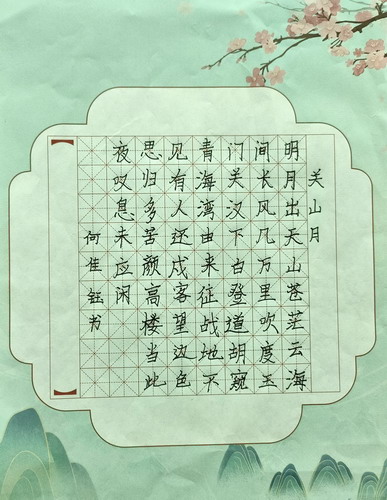 关山月
明月出天山苍茫云海
间长风几万里吹度玉
门关汉下白登道胡窥
青海湾由来征战地不
见有人还戍客望边色
思归多苦颜高楼当此
夜叹息未应闲
何佳钰书